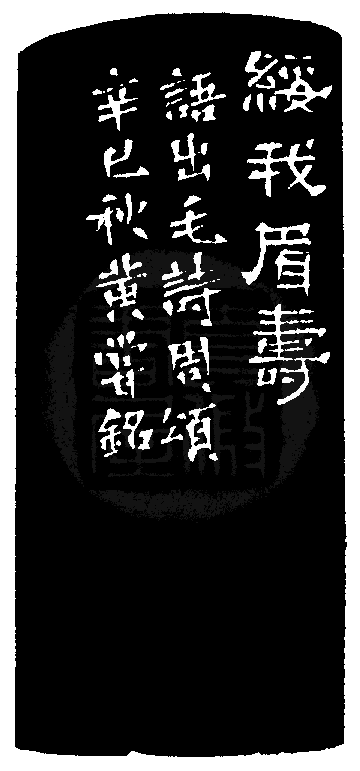 綏我眉壽
語出毛詩周頌
辛巳秋黄嘗銘